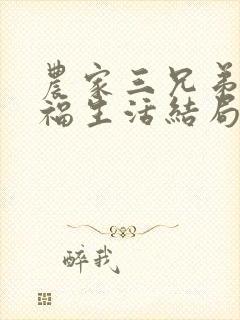 農家三兄弟
福生活結局
醉我